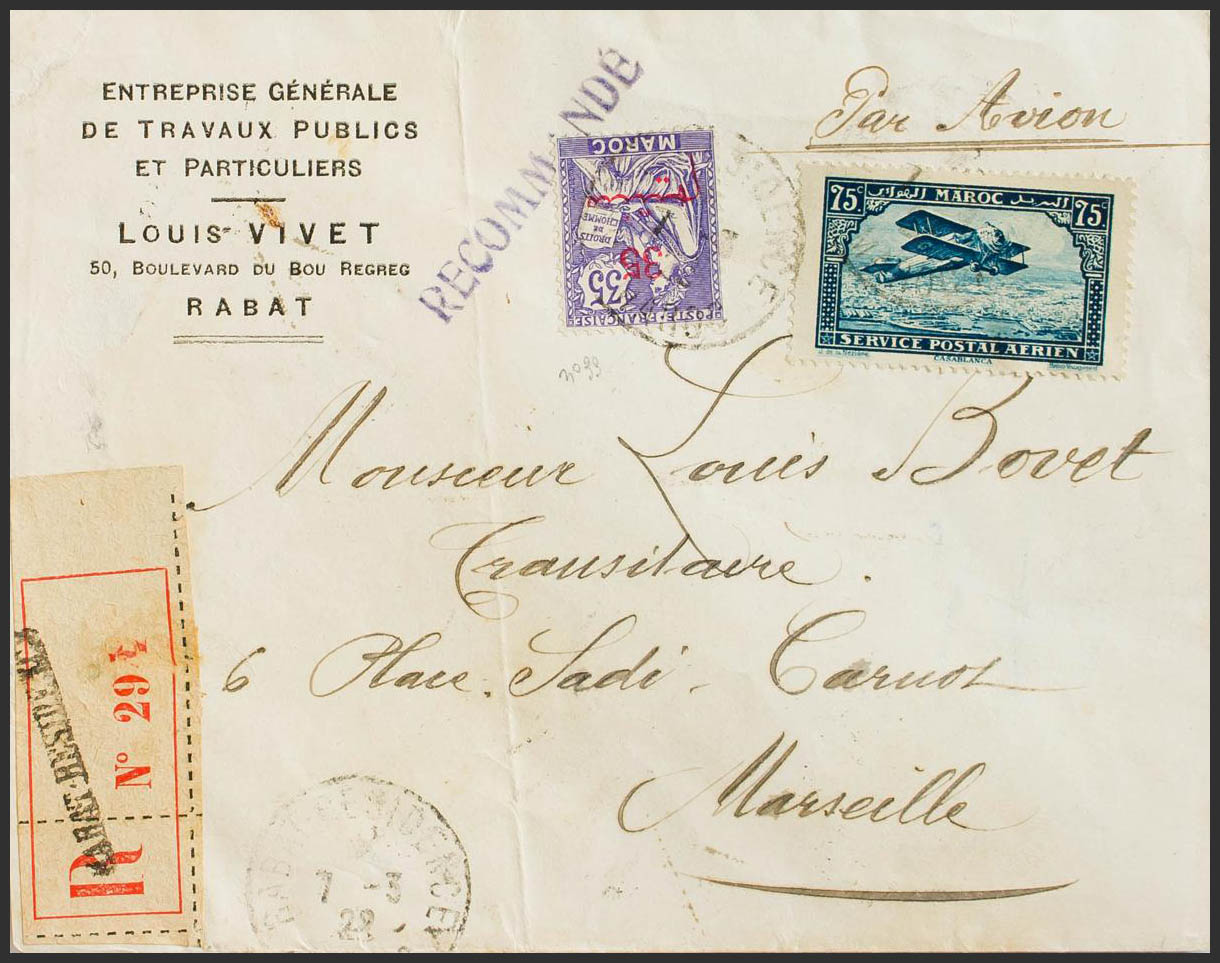 ENTREPRISE GÉNÉRALE
DE TRAVAUX PUBLICS
ET PARTICULIERS
LOUIS VIVET
50, BOULEVARD DU BOU REGREG
RABAT
RECOMMANDÉ
Par Avion
MAROC
DROITS DE L'HOMME
35
35
POSTE FRANÇAISE
75c MAROC البريد الهوائي 75c
SERVICE POSTAL AÉRIEN
CASABLANCA
Monsieur Louis Bovet
Transitaire.
6 Place Sadi-Carnot
Marseille
R No 294
RABAT-RÉSIDENCE
RABAT-RÉSIDENCE
7 -3
22